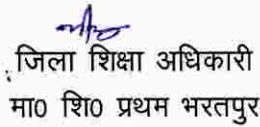 जिला शिक्षा अधिकारी
मा0 शि0 प्रथम भरतपुर